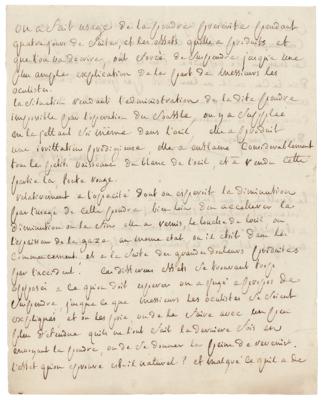 on a fait usage de la poudre prescrite pendant
quatre jours de suite, et les effets quelle a produits, et
que l'on va decrire, ont forcé de suspendre jusqu'a une
plus ample explication de la part de messieurs les
oculistes.
la situation rendant l'administration de la dite poudre
impossible par l'operation du souffle, on y a supplée
en la jettant soi même dans l'oeil. elle a produit
une irritation prodigieuse, elle a enflamé considerablement
tous les petits vaisseaux du blanc de l'oeil et a rendu cette
partie la toute rouge.
relativement a l'opacité dont on esperoit la diminution
par l'usage de cette poudre, bien loin d'en accellerer la
diminution on la
l'epaisseur de la gaze, au meme etat ou il etoit dans le
commencement, et a la suite des grandes douleurs produites
par l'accident. Ces differens effets se trouvant tous
opposés a ce qu'on doit esperer on a jugé a propos de
suspendre, jusqu'a ce que messieurs les oculistes se soient
expliqués et on les prie de le faire avec un peu
plus d'etendue qu'ils ne l'ont fait la derniere fois en
envoyant la poudre, ou de se donner la peine de revenir.
l'effet qu'on eprouve est il naturel? et malgré ce qu'il a de